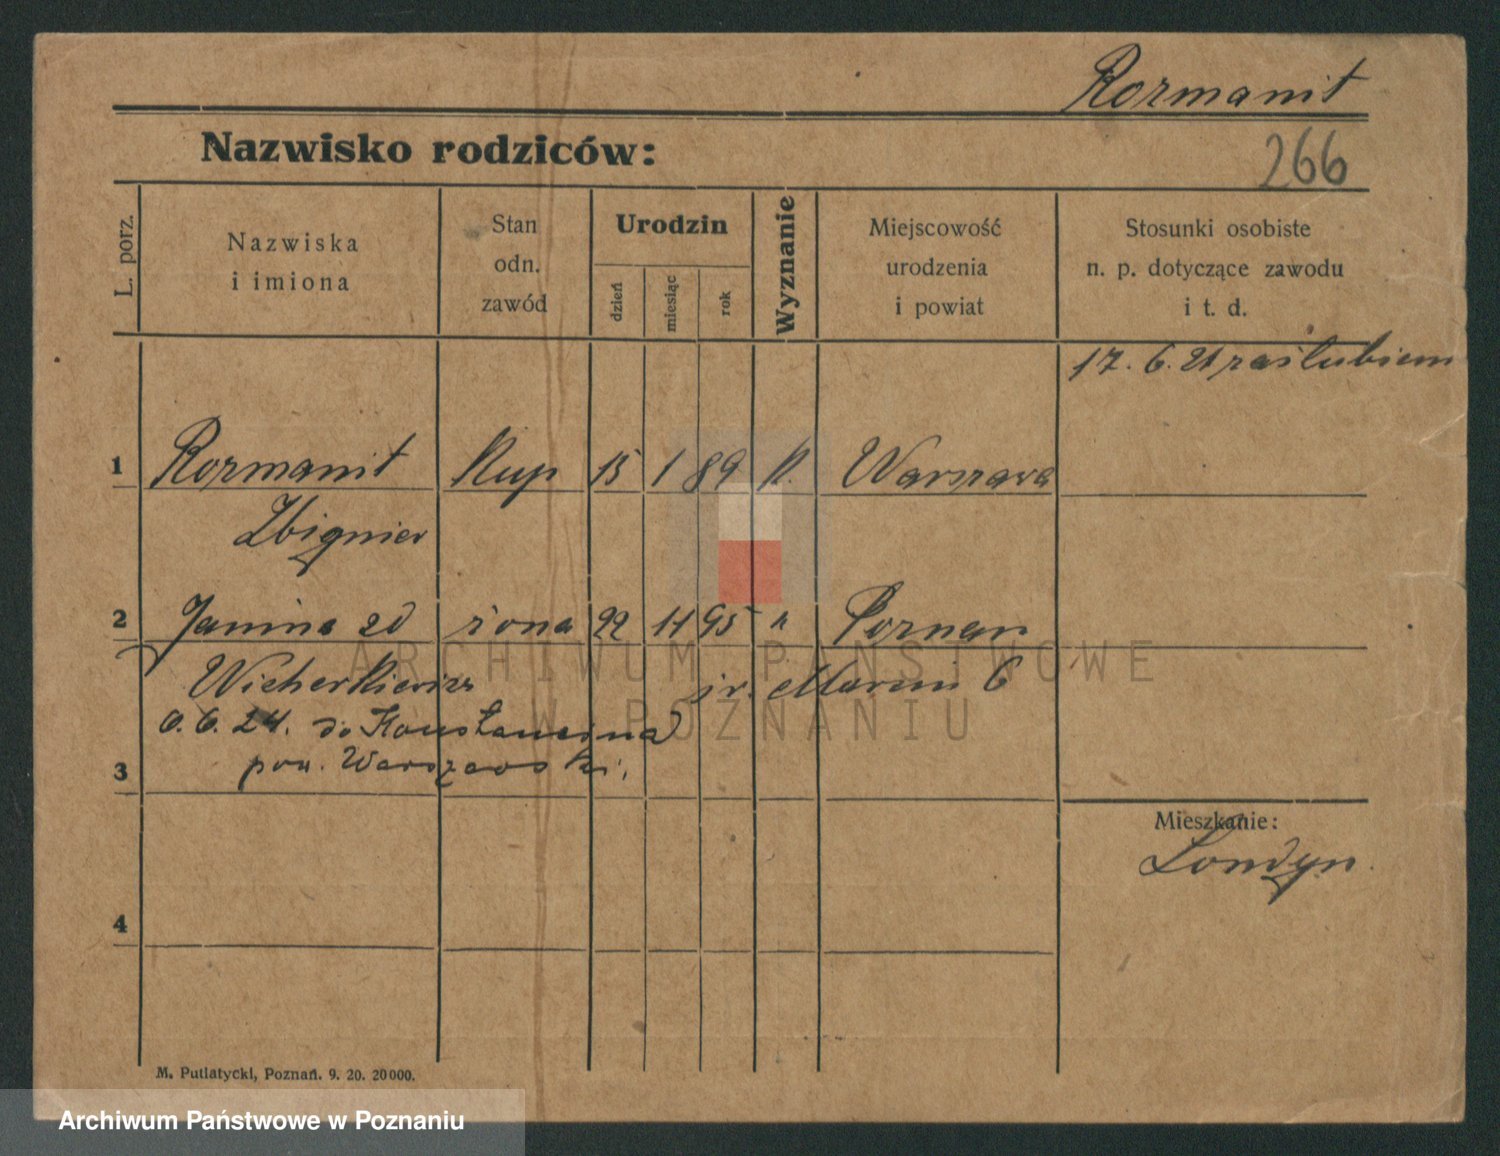 Rozmanit
Nazwisko rodziców:
266
L. porz.
Nazwiska
i imiona
Stan
odn.
zawód
Urodzin
dzień
miesiąc
rok
Wyznanie
Miejscowość
urodzenia
i powiat
Stosunki osobiste
n. p. dotyczące zawodu
i t. d.
17. 6. 21 zaślubieni
1 Rozmanit Kup 15 1 89 K. Warszawa
Zbigniew
2 Janina zd żona 22 11 95 " Poznań
Wicherkiewicz św. Marcin 6
6. 24. do Konstancina
pow. Warszawski,
3
Mieszkanie:
Londyn
4
M. Putiatycki, Poznań. 9. 20. 20000.
ARCHIWUM PAŃSTWOWE
W POZNANIU
Archiwum Państwowe w Poznaniu